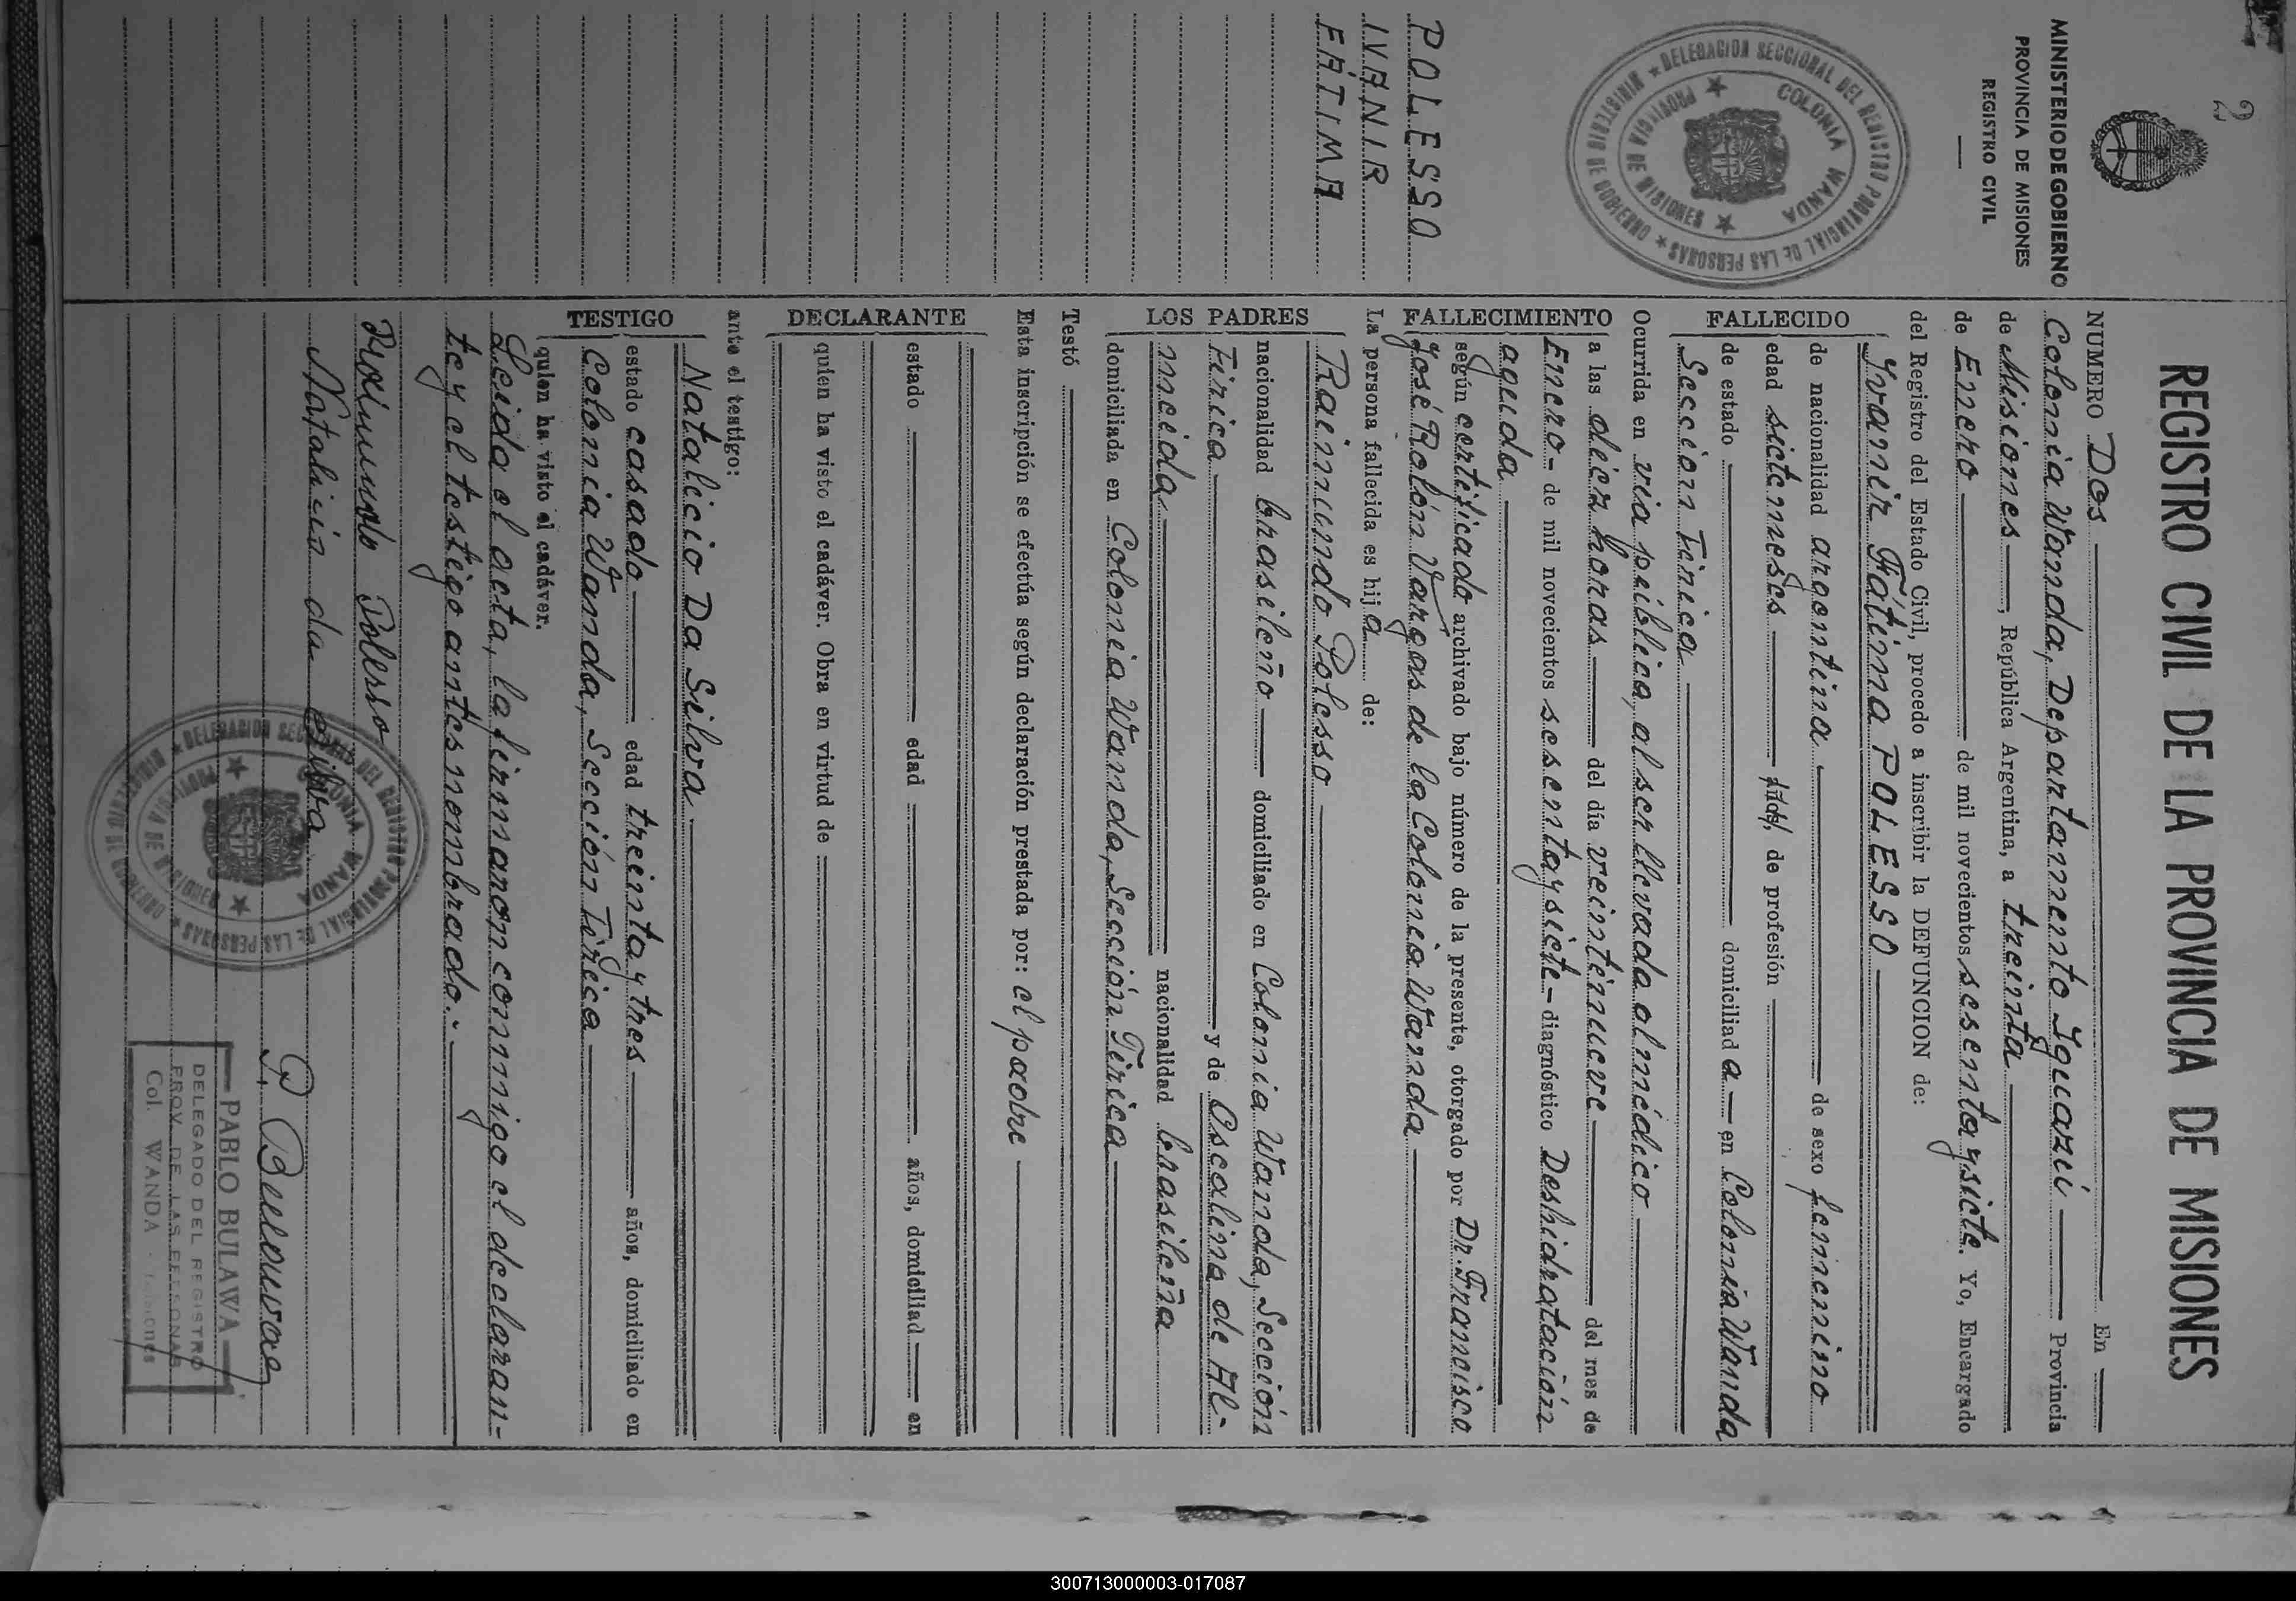 2
MINISTERIO DE GOBIERNO
PROVINCIA DE MISIONES
REGISTRO CIVIL
DELEGACION SECCIONAL DEL REGISTRO PROVINCIAL DE LAS PERSONAS
MINISTERIO DE GOBIERNO
COLONIA WANDA
PROVINCIA DE MISIONES
POLESSO
IVANIR
FÁTIMA
REGISTRO CIVIL DE LA PROVINCIA DE MISIONES
NUMERO Dos En
Colonia Wanda, Departamento Iguazú Provincia
de Misiones, República Argentina, a treinta
de Enero de mil novecientos sesenta y siete. Yo, Encargado
del Registro del Estado Civil, procedo a inscribir la DEFUNCION de:
FALLECIDO
Yvanir Fátima POLESSO
de nacionalidad argentina de sexo femenino
edad siete meses años, de profesión
de estado domiciliad a en Colonia Wanda
Sección Tirica
FALLECIMIENTO
Ocurrida en via pública, al ser llevada al médico
a las diez horas del día veintinueve del mes de
Enero - de mil novecientos sesenta y siete - diagnóstico Deshidratación
aguda
según certificado archivado bajo número de la presente, otorgado por Dr. Francisco
José Rolón Vargas de la Colonia Wanda
La persona fallecida es hij a de:
LOS PADRES
Raimundo Polesso
nacionalidad brasileño domiciliado en Colonia Wanda, Sección
Tirica y de Oscalina de Al-
meida nacionalidad brasileña
domiciliada en Colonia Wanda, Sección Tirica
Testó
Esta inscripción se efectúa según declaración prestada por: el padre
DECLARANTE
estado edad años, domiciliad en
quien ha visto el cadáver. Obra en virtud de
ante el testigo:
TESTIGO
Natalicio Da Silva
estado casado edad treinta y tres años, domiciliado en
Colonia Wanda, Sección Tirica
quien ha visto el cadáver.
Leida el acta, la firmaron conmigo el declaran-
te y el testigo antes nombrado.-
Raimundo Polesso
Natalicio da Silva
DELEGACION SECCIONAL DEL REGISTRO PROVINCIAL DE LAS PERSONAS
MINISTERIO DE GOBIERNO
COLONIA WANDA
PROVINCIA DE MISIONES
PABLO BULAWA
DELEGADO DEL REGISTRO
PROV. DE LAS PERSONAS
Col. WANDA - Misiones
300713000003-017087